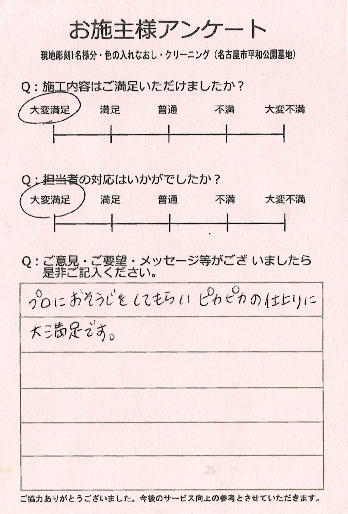 お施主様アンケート
現地彫刻1名様分・色の入れなおし・クリーニング（名古屋市平和公園墓地）
Q：施工内容はご満足いただけましたか？
大変満足 満足 普通 不満 大変不満
Q：担当者の対応はいかがでしたか？
大変満足 満足 普通 不満 大変不満
Q：ご意見・ご要望・メッセージ等がござ いましたら
是非ご記入ください。
プロにおそうじをしてもらい ピカピカの仕上りに
大満足です。
ご協力ありがとうございました。今後のサービス向上の参考とさせていただきます。